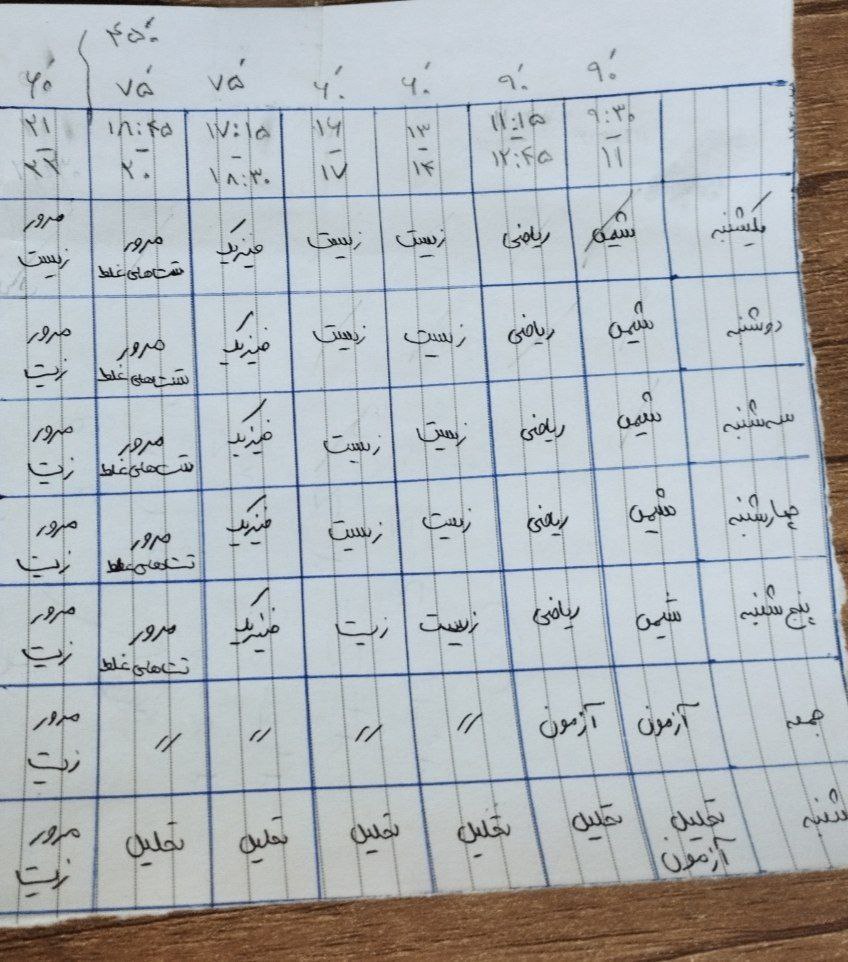 ۴۵'
۹۰' ۹۰' ۶۰' ۶۰' ۷۵' ۷۵' ۶۰'
۹:۳۰ - ۱۱ ۱۱:۱۵ - ۱۲:۴۵ ۱۳ - ۱۴ ۱۶ - ۱۷ ۱۷:۱۵ - ۱۸:۳۰ ۱۸:۴۵ - ۲۰ ۲۱ - ۲۲
یکشنبه شیمی ریاضی زیست زیست فیزیک مرور تست‌های غلط مرور زیست
دوشنبه شیمی ریاضی زیست زیست فیزیک مرور تست‌های غلط مرور زیست
سه‌شنبه شیمی ریاضی زیست زیست فیزیک مرور تست‌های غلط مرور زیست
چهارشنبه شیمی ریاضی زیست زیست فیزیک مرور تست‌های غلط مرور زیست
پنج شنبه شیمی ریاضی زیست زیست فیزیک مرور تست‌های غلط مرور زیست
جمعه آزمون آزمون // // // // مرور زیست
شنبه تحلیل آزمون تحلیل تحلیل تحلیل تحلیل تحلیل مرور زیست